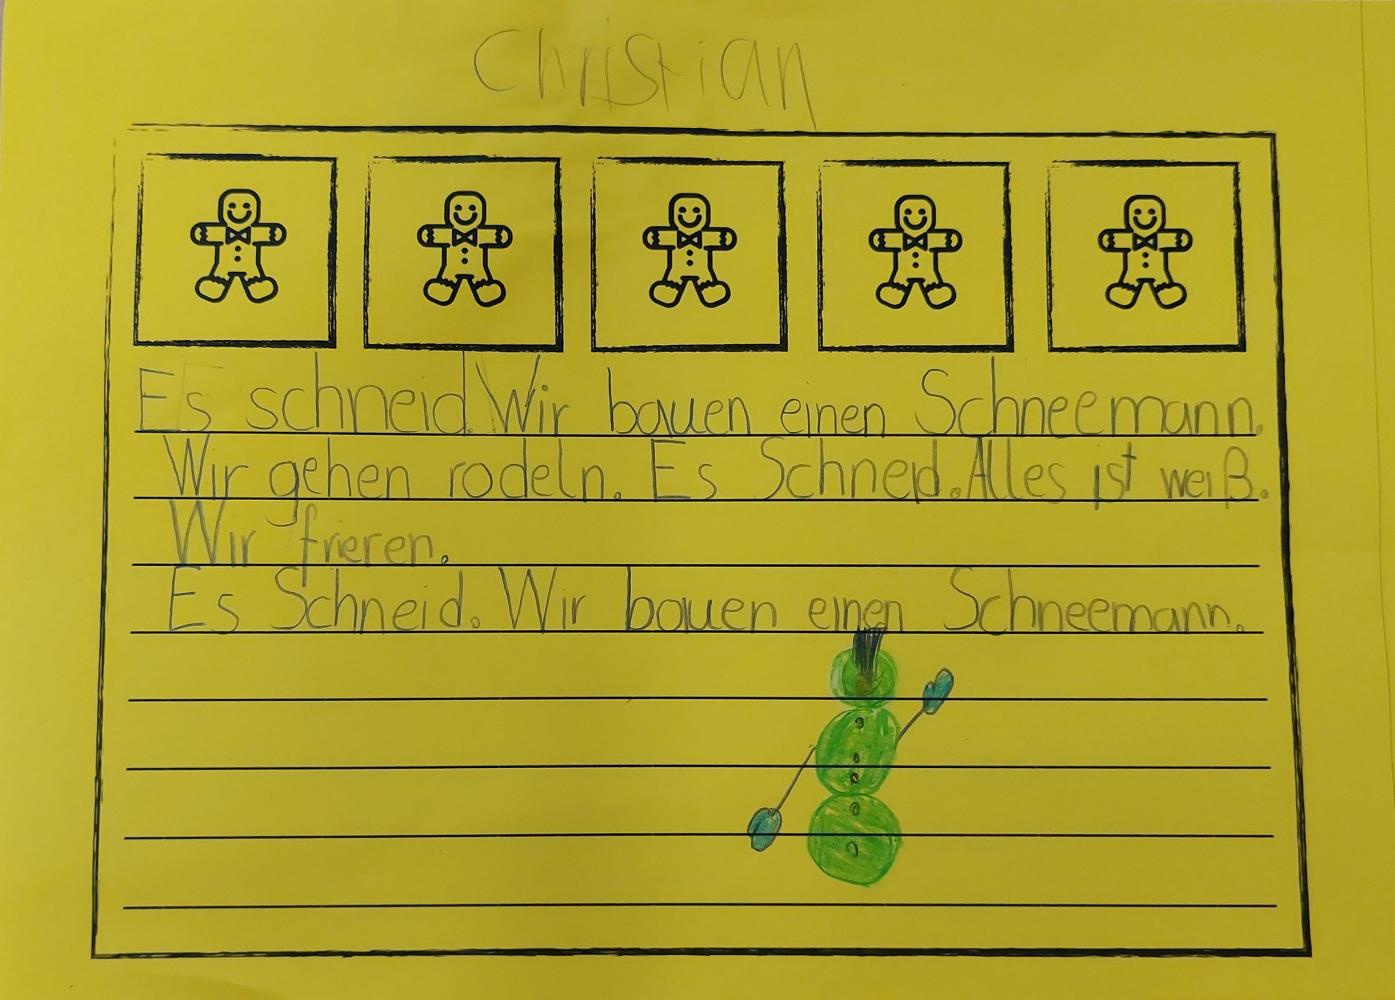 Christian
Es schneid. Wir bauen einen Schneemann.
Wir gehen rodeln. Es Schneid. Alles ist weiß.
Wir frieren.
Es Schneid. Wir bauen einen Schneemann.